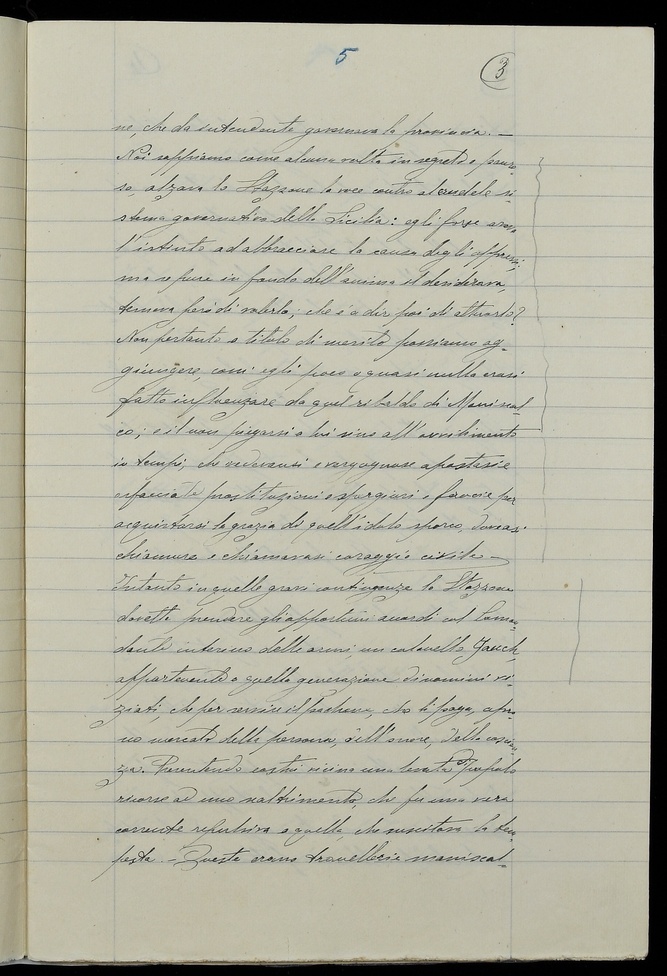 5
3
ne, che da intendente governava la provincia. —
Noi sappiamo come alcuna volta in segreto e pauro-
so, alzava lo Stazzone la voce contro al crudele si-
stema governativo della Sicilia: egli forse aveva
l'istinto ad abbracciare la causa degli oppressi,
ma se pure in fondo dell'anima il desiderava
temeva però di volerlo; che è a dir poi di attuarlo?
Non pertanto a titolo di merito possiamo ag-
giungere, com'egli poco o quasi nulla erasi
fatto influenzare da quel ribaldo di Maniscal-
co; e il non piegarsi a lui sino all'avvilimento
in tempi, che vedevansi e vergognose apostasie
e sfacciate prostituzioni e spergiuri e per
acquistarsi la grazia di quell'idolo sporco, doveasi
chiamare e chiamavasi coraggio civile —
Intanto in quelle gravi contingenze lo Stazzone
dovette prendere gli opportuni accordi col Coman-
dante interino delle armi, un colonnello Jauch,
appartenente a quella generazione di uomini vi-
ziati, che per servire il padrone, che li paga,
no mercato della persona, dell'onore, della coscien-
za. Presentendo costui vicina una levata Trapali
ricorse ad uno saltimento, che fu una vera
corrente repulsiva a quella, che suscitava la tem-
pesta. — Queste erano maniscal-